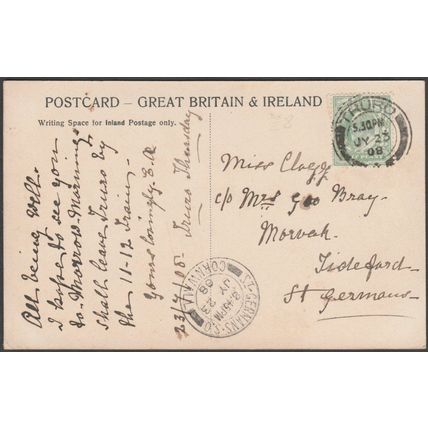 POSTCARD – GREAT BRITAIN & IRELAND
Writing Space for Inland Postage only.
TRURO
5.30PM
JY 23
08
Miss Clogg
c/o Mrs Geo Bray.
Morvah.
Tideford.
St Germans
All being well.
I hope to see you
to Morrow Morning
shall leave Truro by
the 11-12 Train.
Yours lovingly E.A
23/7/08. Truro Thursday
ST GERMANS S.O
8.45PM
JY 23
08
CORNWALL